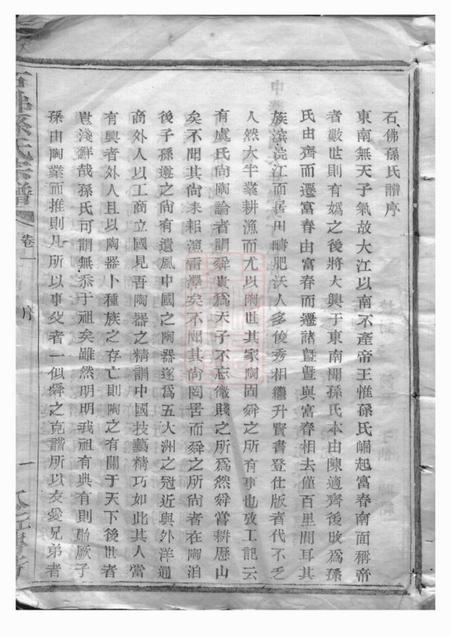 石佛孫氏譜序
東南無天子氣故大江以南不產帝王惟孫氏崛起富春南面稱帝
者數世則有媯之後將大興于東南聞孫氏本由陳適齊後改爲孫
氏由齊而遷富春由富春而遷諸暨暨與富春相去僅百里間耳其
族濱浣江而居田疇肥沃人多俊秀相繼升賢書登仕版者代不乏
人然大半業耕漁而尤以陶世其家陶固舜之所有事也攷工記云
有虞氏尚陶論者謂舜貴爲天子不忘微賤之所爲然舜嘗耕歷山
矣不聞其尚耒耜漁雷澤矣不聞其尚罔罟而舜之所尚者在陶洎
後子孫遵之尚有遺風中國之陶器遂爲五大洲之冠近與外洋通
商外人以工商立國見吾陶器之精訓中國技藝精巧如此其人當
有興者外人且以陶器卜種族之存亡則陶之有關于天下後世者
豈淺鮮哉孫氏可謂無忝于祖矣雖然明明我祖有典有則貽厥子
孫由陶業而推則凡所以事父者一似舜之克諧所以友愛兄弟者
孫氏宗譜
卷一
序
一